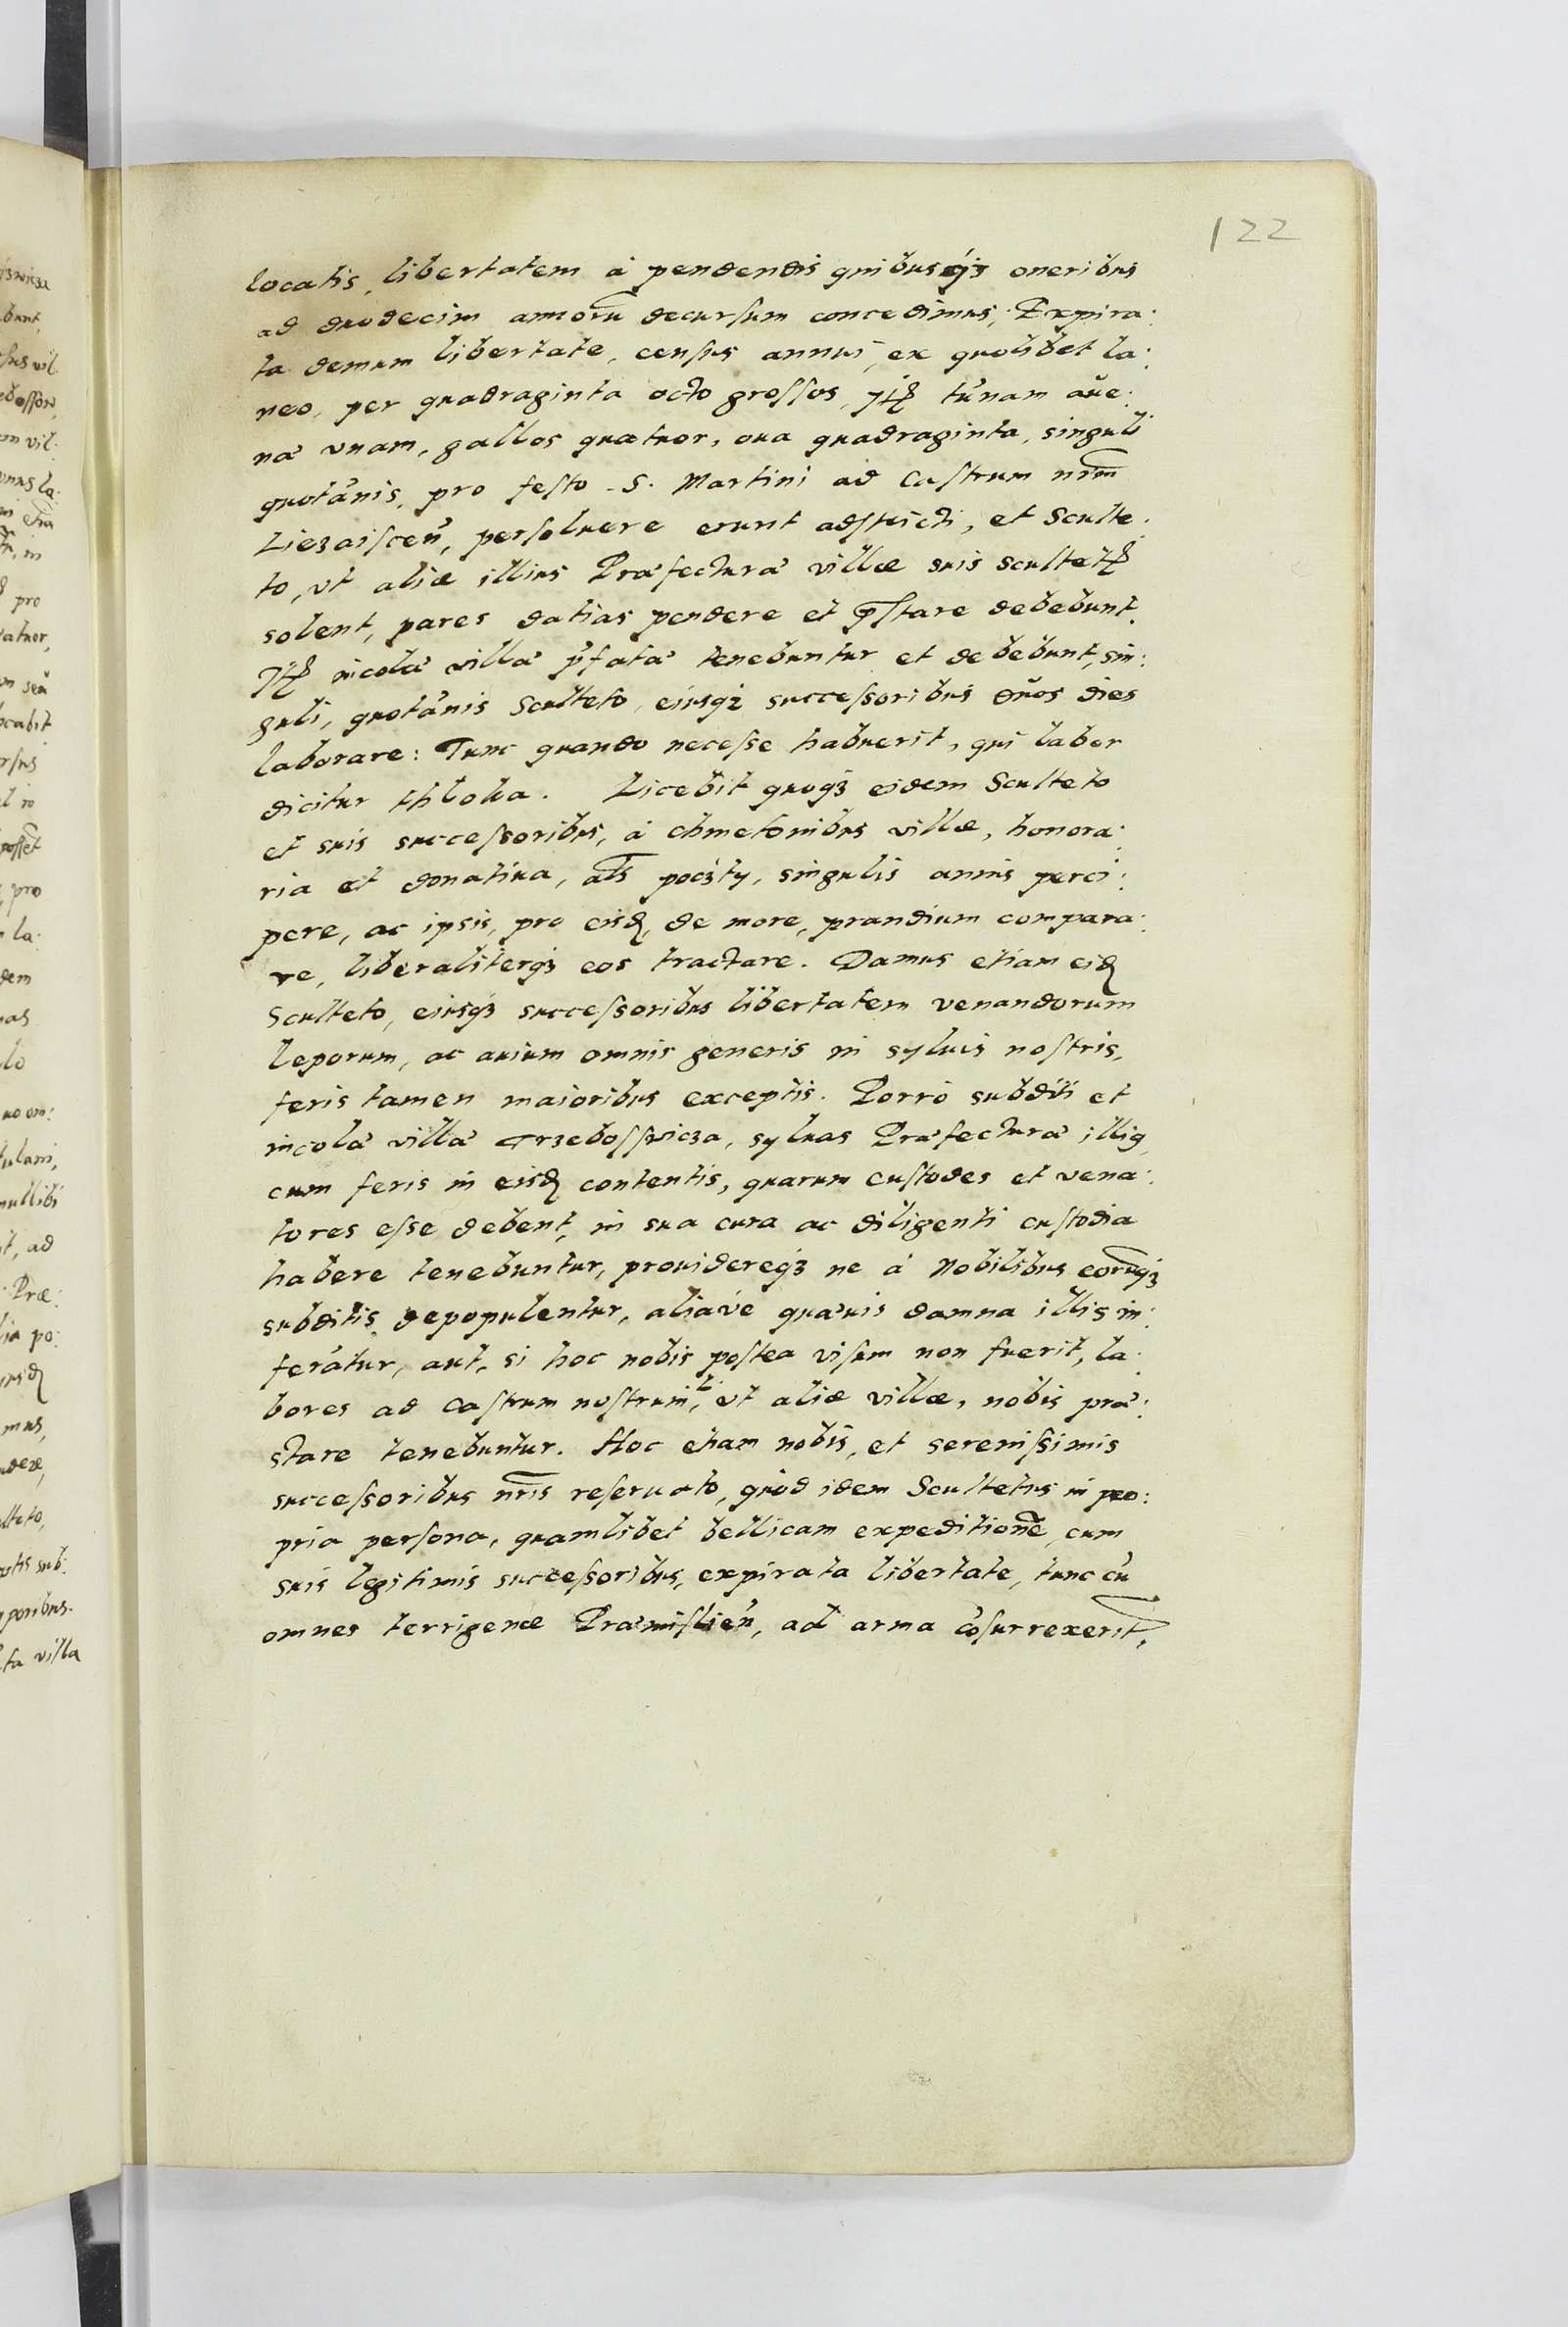 122
locatis, libertatem à pendendis quibusq́ʒ oneribus
ad duodecim annorũ decursum concedimus; Expira:
ta demum libertate, census annui, ex quolibet la:
neo, per quadraginta octo grossos, Itꝫ tũnam aũe:
næ vnam, gallos quatuor, oua quadraginta, singuli
quotãnis, pro festo S. Martini ad Castrum nr̃m
Liezaiscen̄, persoluere erunt adstricti, et Sculte:
to, vt aliæ illius Præfecturæ villæ suis scultetꝫ
solent, pares datias pendere et p̃stare debebunt.
Itꝫ incolæ villæ p̃fatæ tenebuntur et debebunt, sin:
guli, quotãnis Sculteto, eiusqʒ successoribus duos dies
laborare: Tunc quando necesse habuerit, qui labor
dicitur thloka. Licebit quoqʒ eidem Sculteto
et suis successoribus, à chmetonibus villæ, honora:
ria et donatiua, als̃ poczty, singulis annis perci:
pere, ac ipsis, pro eisd, de more, prandium compara:
re, liberaliterqʒ eos tractare. Damus etiam eid
Sculteto, eiusqʒ successoribus libertatem venandorum
leporum, ac auium omnis generis in syluis nostris,
feris tamen maioribus exceptis. Porrò subditi et
incolæ villæ Trzebossnicza, syluas Præfecturæ illiq
cum feris in eisd contentis, quarum custodes et vena:
tores esse debent, in sua cura ac diligenti custodia
habere tenebuntur, prouidereqʒ ne à Nobilibus eorũqʒ
subditis depopulentur, aliaúe quæuis damna illis in:
ferãtur, aut, si hoc nobis postea visum non fuerit, la:
bores ad castrum nostrum, vt aliæ villæ, nobis præ:
stare tenebuntur. Hoc etiam nobis, et serenissimis
successoribus nr̃is reseruato, quòd idem Scultetus in pro:
pria persona, quamlibet bellicam expeditionẽ, cum
suis legitimis successoribus, expirata libertate, tunc cũ
omnes terrigenæ Præmislien̄, ad arma cõsurrexerĩt,